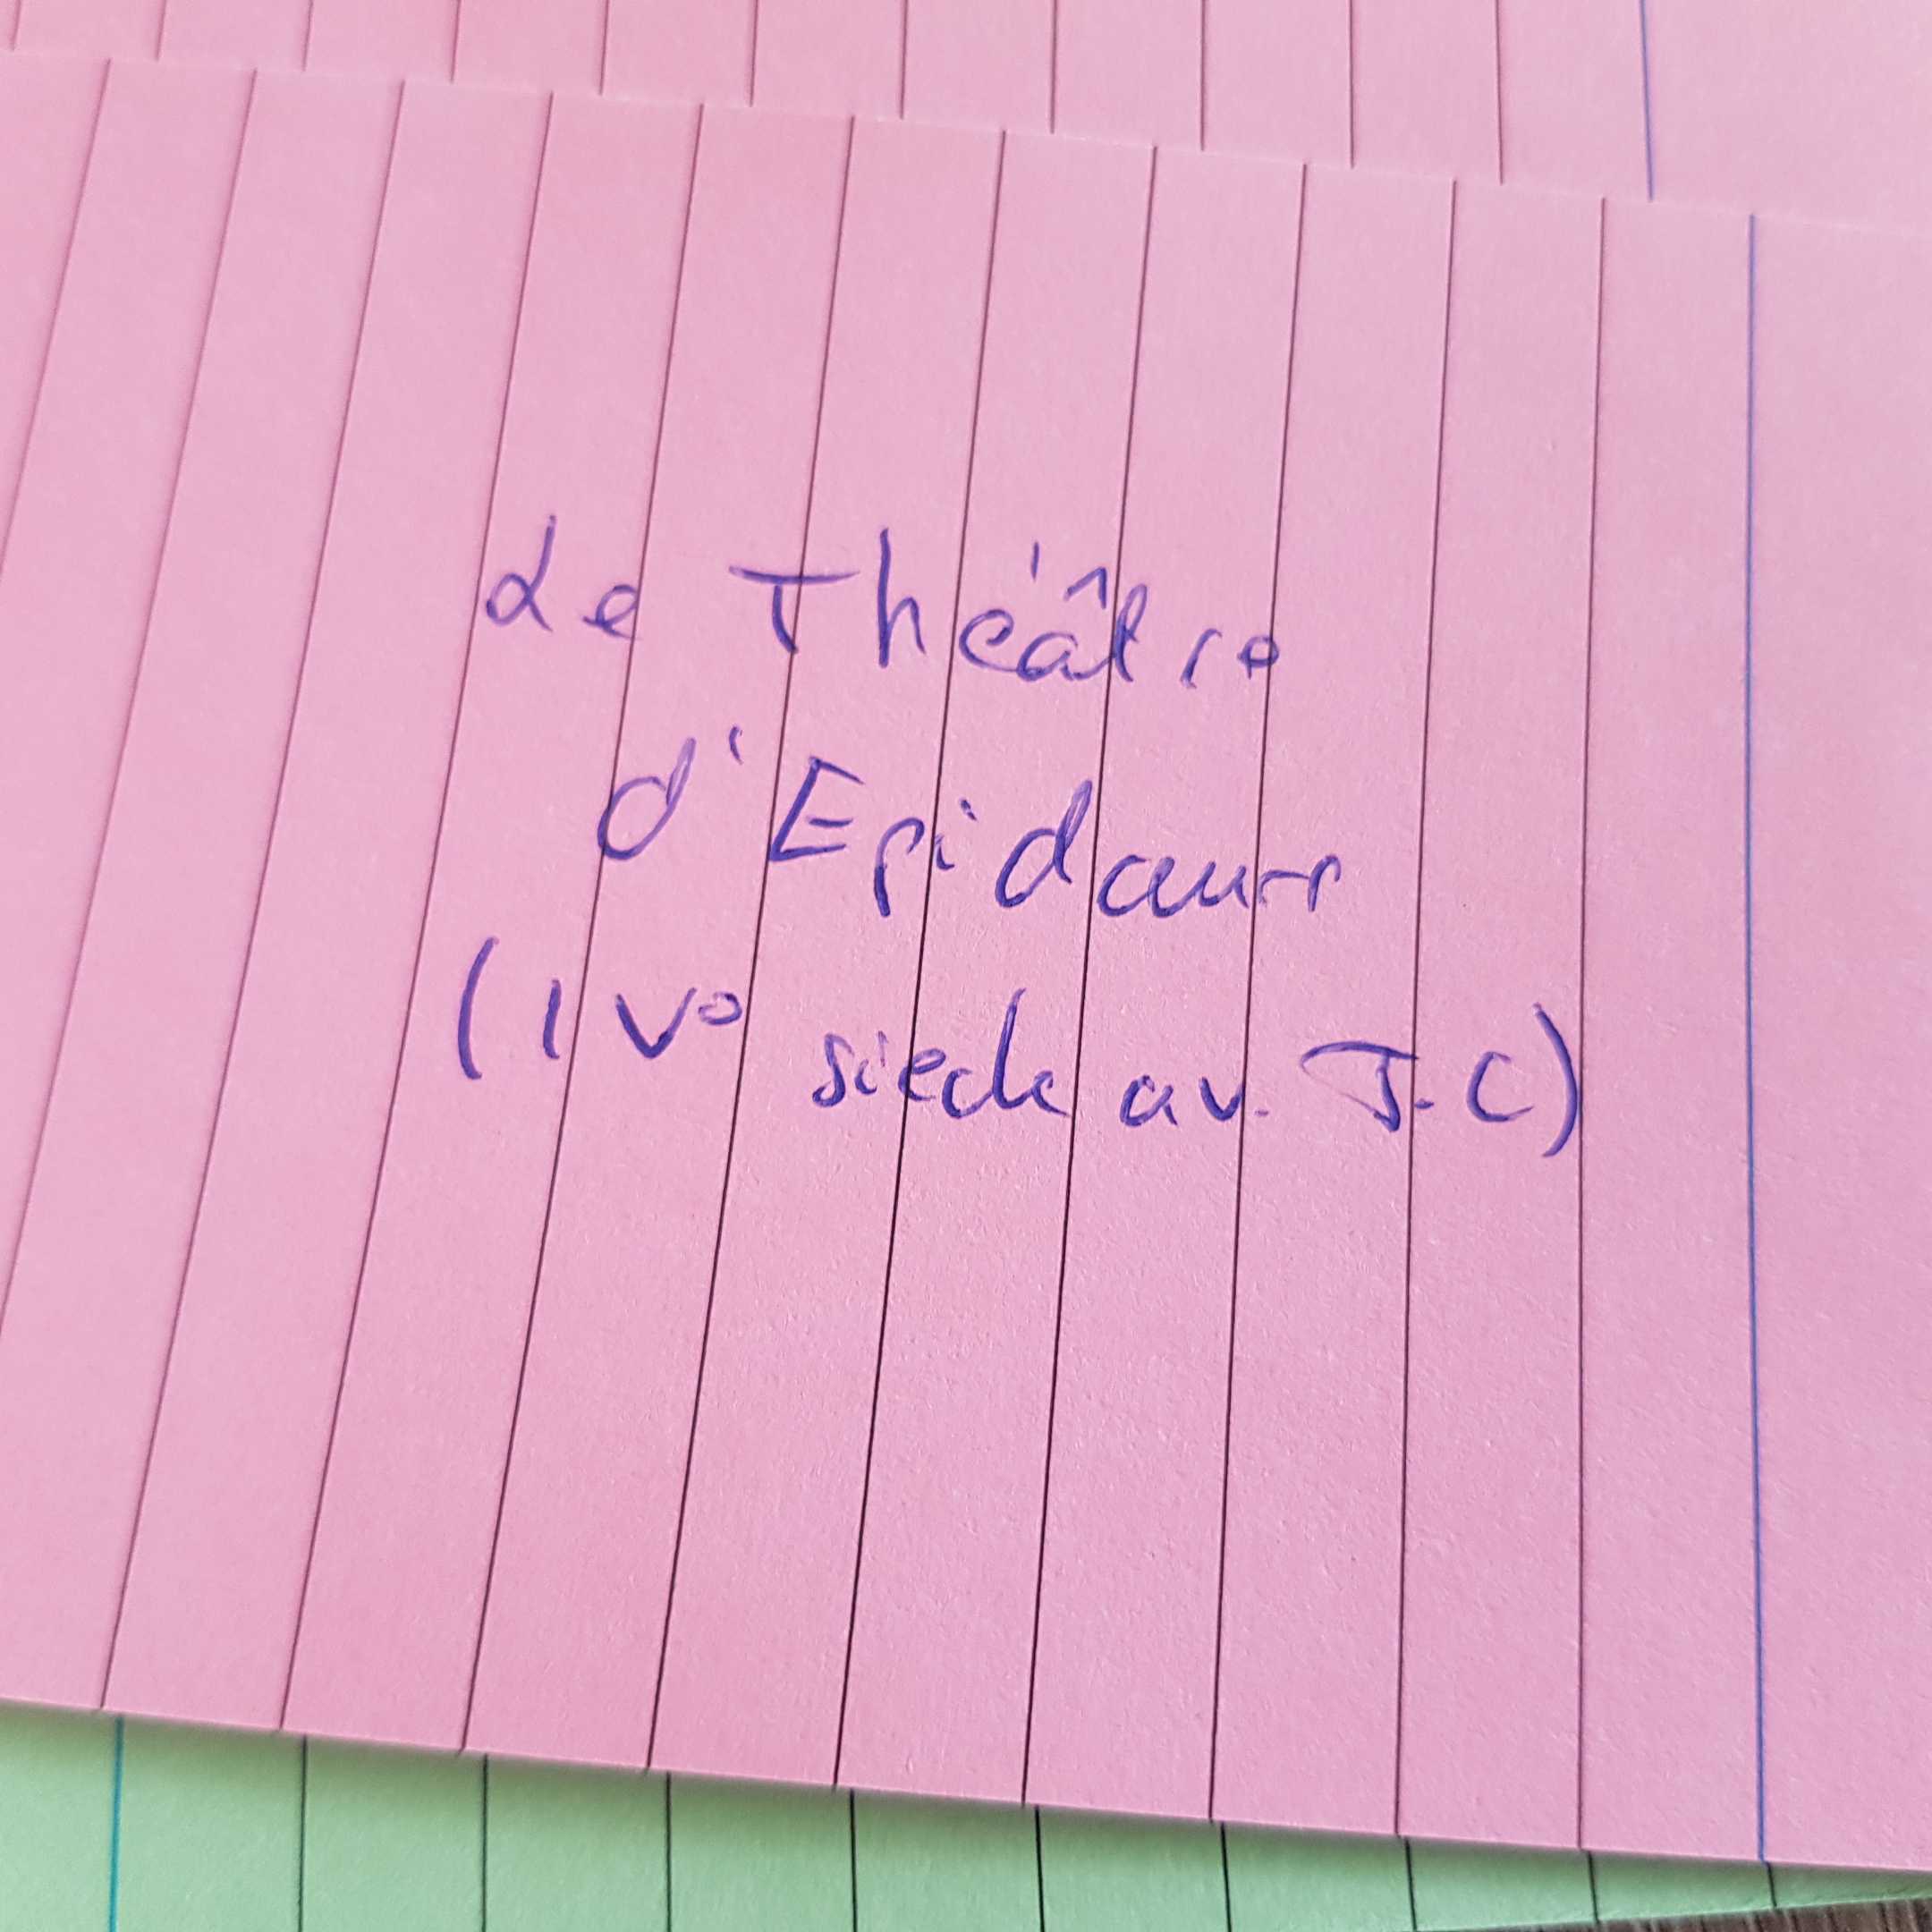 Le Théâtre
d'Epidaure
(IV° siecle av. J.C)